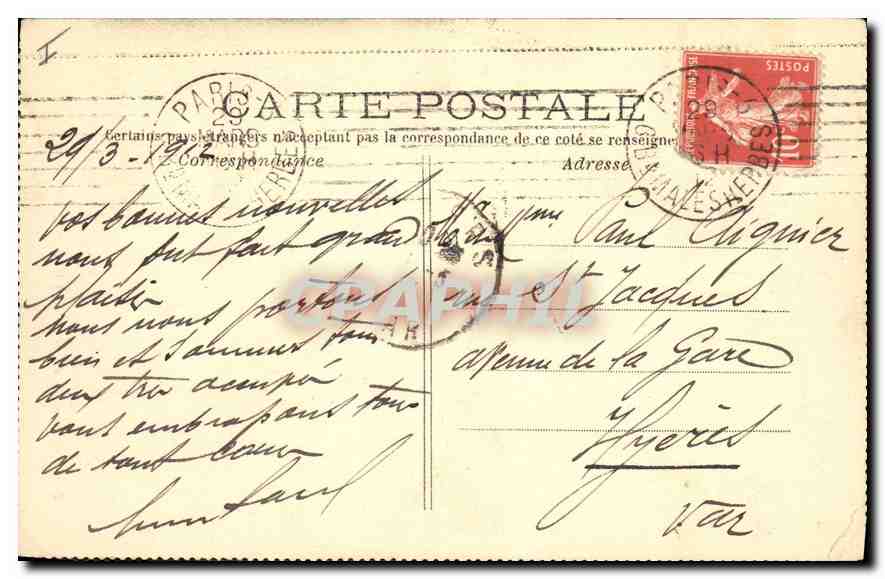 I
CARTE POSTALE
Certains pays étrangers n'acceptant pas la correspondance de ce coté se renseigner
Correspondance
Adresse
POSTES
10
PARIS
29
MALESHERBES
29/3-1912
Vos bonnes nouvelles
nous ont fait grand
plaisir
nous nous portons
bien et sommes tous
deux très occupés
vous embrassons tous
de tout cœur
Paul
Paul
St Jacques
avenue de la Gare
Hyères
Var
CPAPHIL